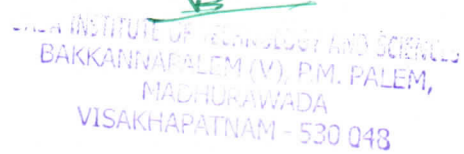 INSTITUTE OF TECHNOLOGY AND SCIENCES
BAKKANNAPALEM (V), P.M. PALEM,
MADHURAWADA
VISAKHAPATNAM - 530 048